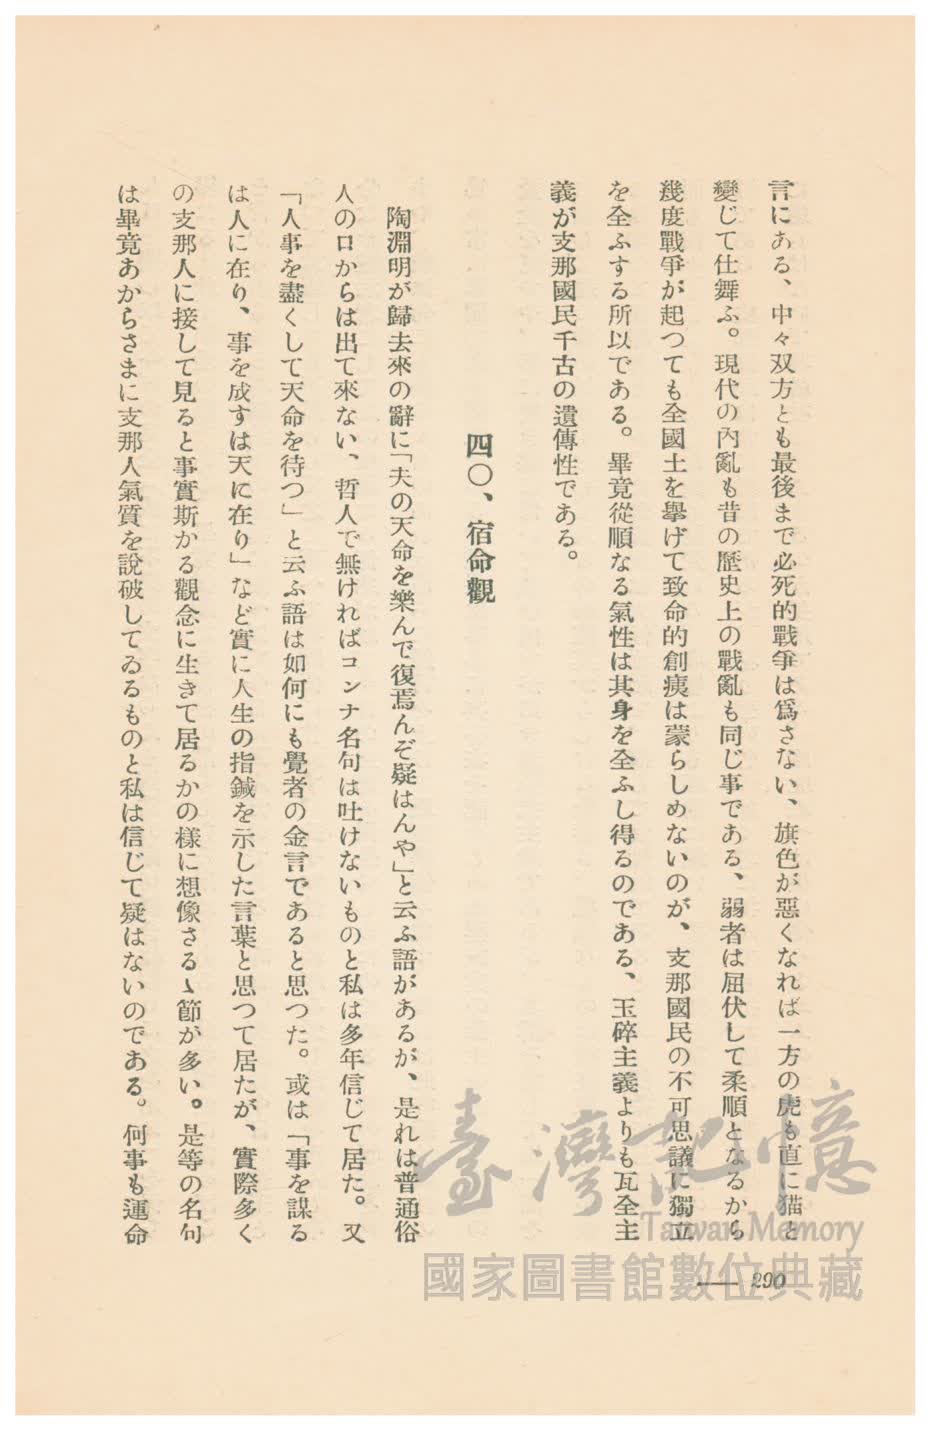 言にある、中々双方とも最後まで必死的戰爭は爲さない、旗色が惡くなれば一方の虎も直に猫と
變じて仕舞ふ。現代の內亂も昔の歷史上の戰亂も同じ事である、弱者は屈伏して柔順となるから
幾度戰爭が起つても全國土を擧げて致命的創痍は蒙らしめないのが、支那國民の不可思議に獨立
を全ふする所以である。畢竟從順なる氣性は其身を全ふし得るのである、玉碎主義よりも瓦全主
義が支那國民千古の遺傳性である。
四〇、宿命觀
陶淵明が歸去來の辭に「夫の天命を樂んで復焉んぞ疑はんや」と云ふ語があるが、是れは普通俗
人の口からは出て來ない、哲人で無ければコンナ名句は吐けないものと私は多年信じて居た。又
「人事を盡くして天命を待つ」と云ふ語は如何にも覺者の金言であると思つた。或は「事を謀る
は人に在り、事を成すは天に在り」など實に人生の指鍼を示した言葉と思つて居たが、實際多く
の支那人に接して見ると事實斯かる觀念に生きて居るかの樣に想像さるゝ節が多い。是等の名句
は畢竟あからさまに支那人氣質を說破してゐるものと私は信じて疑はないのである。何事も運命
290
臺灣記憶
Taiwan Memory
國家圖書館數位典藏